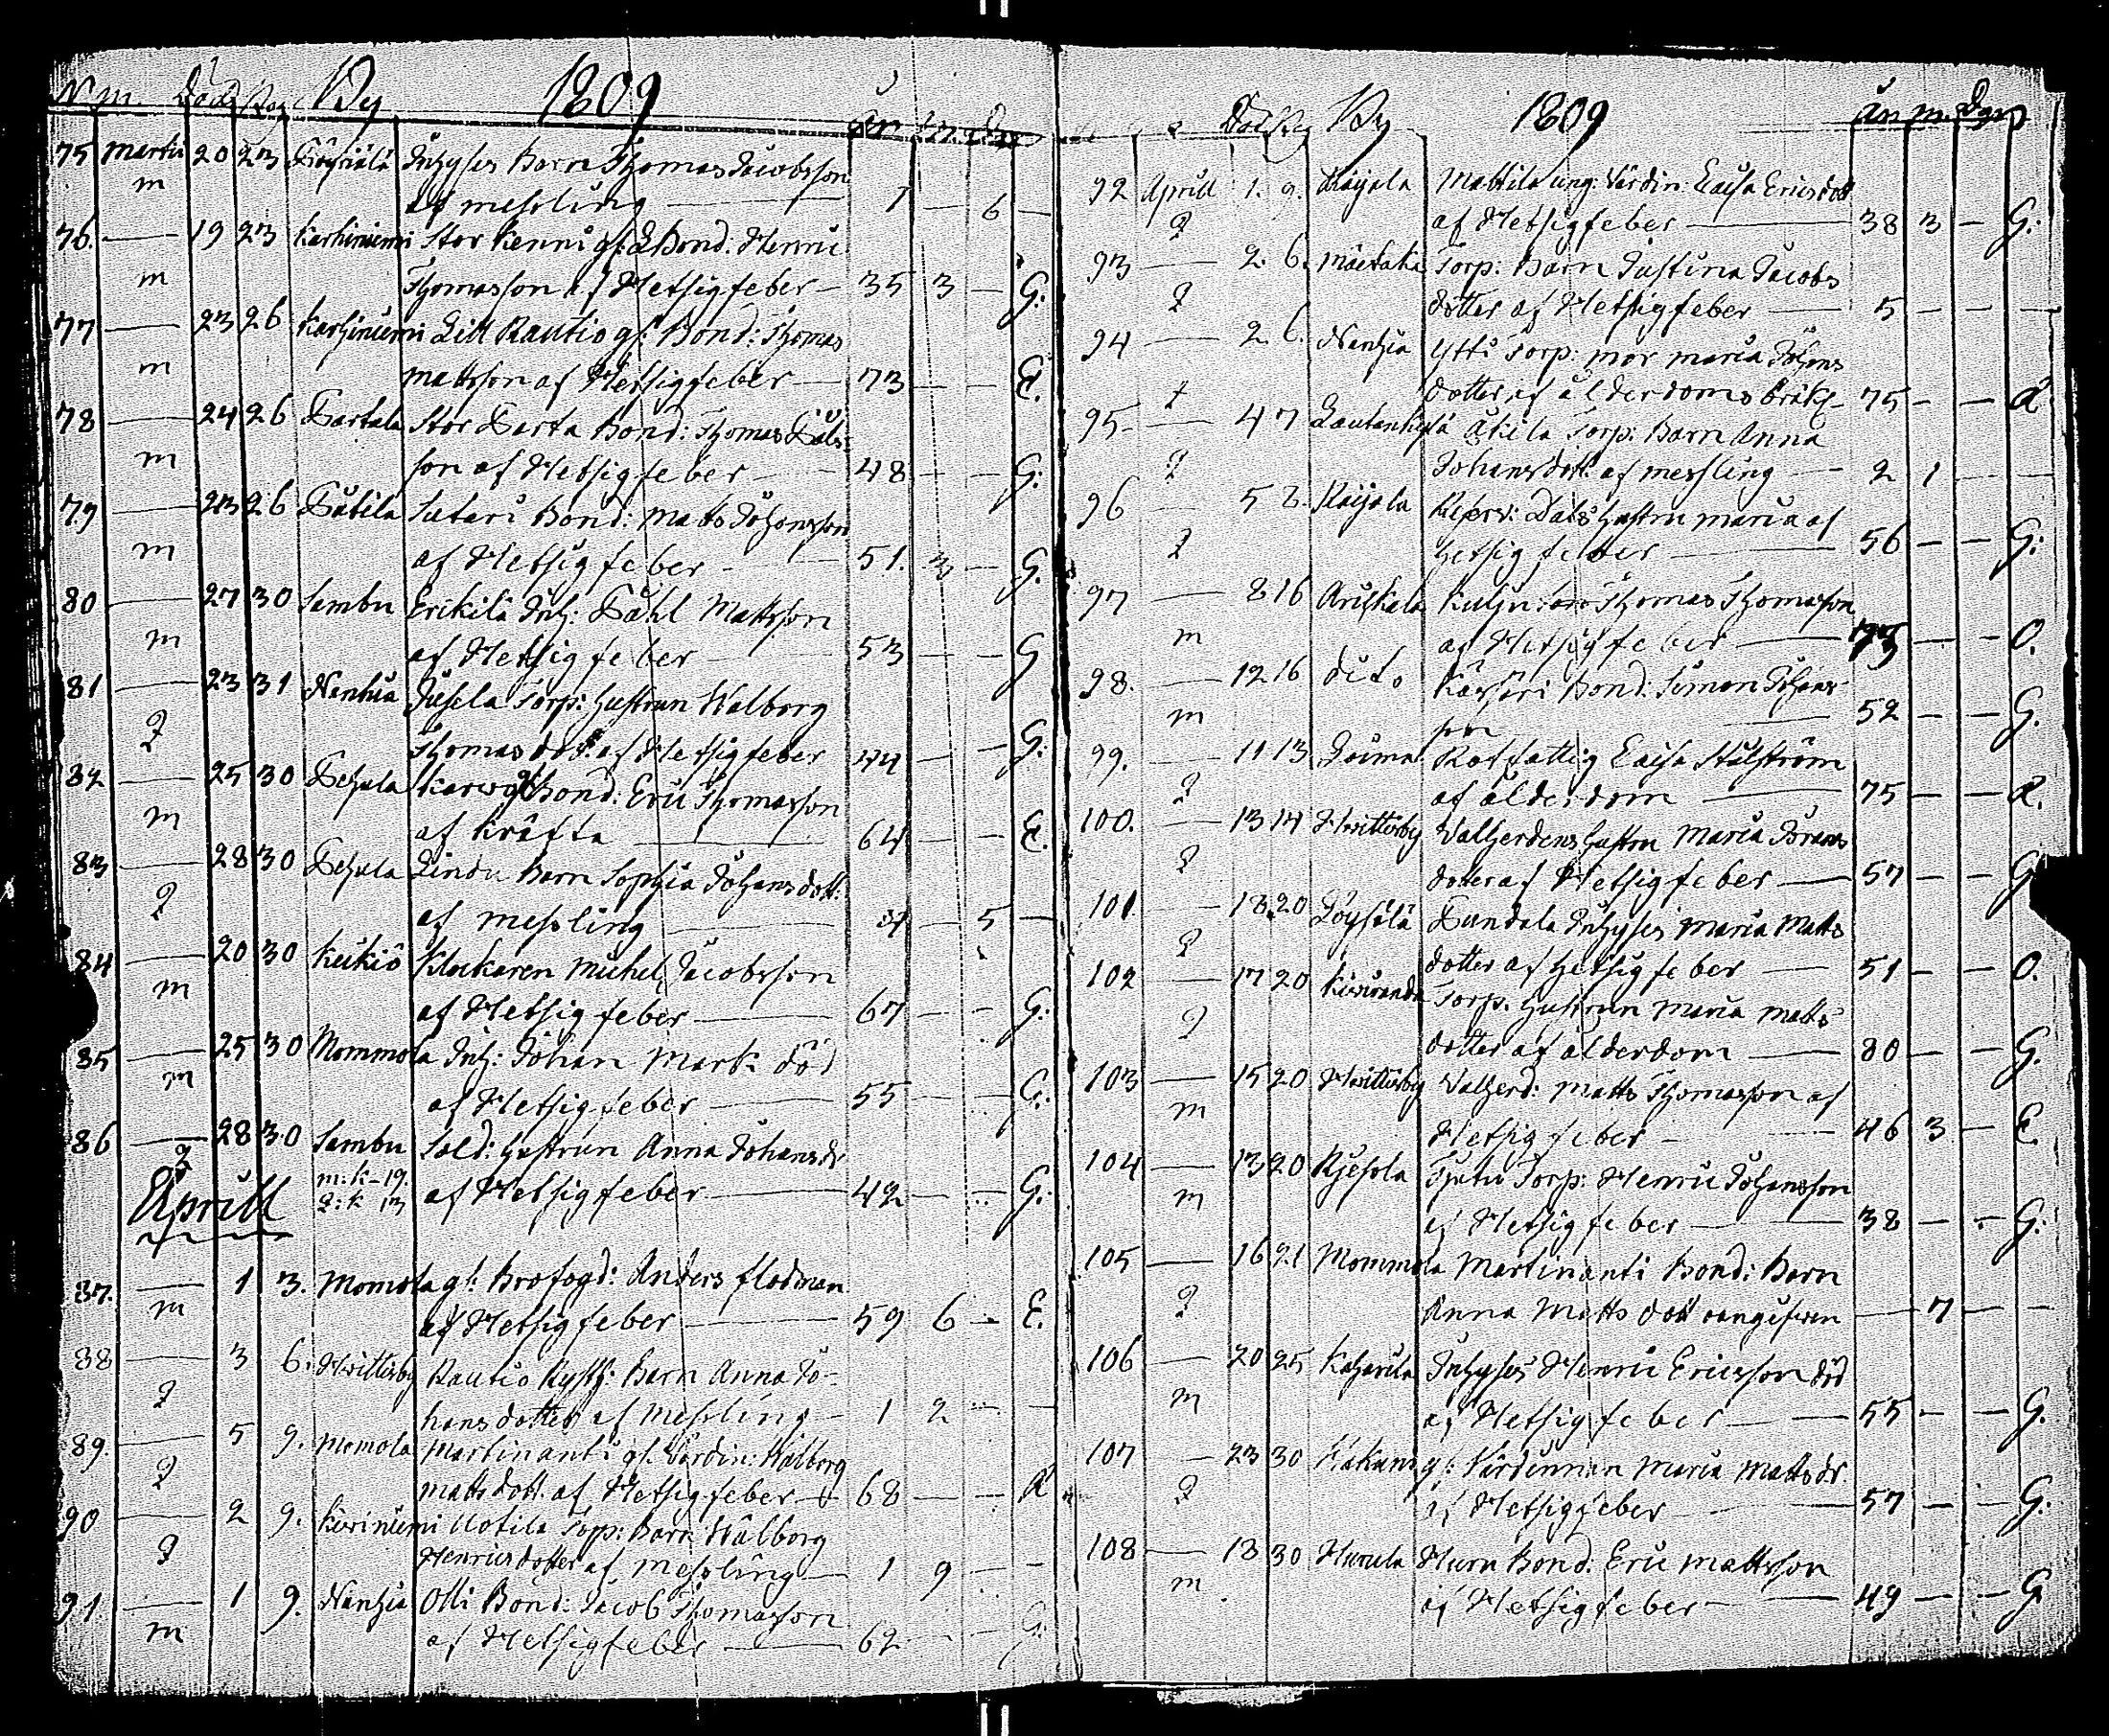 N m. Död Beg By 1809 år m. Dg
75 Martii 20 23 Löysälä Inhyses Barn Thomas Jacobsson
m af messling — 7 — 6 —
76. — 19 23 Karhiniemi Stor Kenni gl: Bond. Henric
m Thomasson af Hetsigfeber — 35 3 — G:
77 — 23 26 Karhiniemi Lill Rautio gl: Bond: Thomas
m Mattsson af Hetsigfeber — 73 — — E.
78 — 24 26 Sartala Stor Sarta Bond: Thomas
m son af Hetsigfeber — 48 — — G:
79 — 23 26 Sutari Bond: Matts Johansson
m af Hetsigfeber — 51. 3 — G.
80 — 27 30 Sambu Erikilä Inh: Påhl Mattsson
m af Hetsigfeber — 53 — — G
81 — 23 31 Nanhia Jusela Torp: Hustrun Walborg
Q Thomas dott: af Hetsigfeber 44 — — G:
82 — 25 30 Bond: Eric Thomasson
m af kräfta — 64 — — E.
83 — 28 30 Lindu Barn Sophia Johansdott:
Q af messling — 4 — 5 —
84 — 20 30 Keikiö Klockaren Michel Jacobsson
m af Hetsigfeber — 67 — — G:
85 — 25 30 Mommola Inh: Johan Mark död
m af Hetsigfeber — 55 — — G:
86 — 28 30 Sambu Sold: Hustrun Anna Johansdr
Q m: k - 19. af Hetsigfeber — 42 — — G:
Aprill Q: k 13
87. — 1 3. Momola gl: Brofogd: Anders flodman
m af Hetsigfeber — 59 6 — E.
88 — 3 6. Hvittisby Rautio Rysth: Barn Anna Jo-
Q hans dotter af Messling — 1 2 — —
89. — 5 9. Momola Martinanti gl: Värdin: Walborg
Q Matts dott. af Hetsigfeber — 68 — — A
90 — 2 9. Kiviniemi Uotila Torp: Barn Walborg
Q Henricsdotter af Messling — 1 9 — —
91 — 1 9. Nanhia Olli Bond: Jacob Thomasson
m af Hetsigfeber — 62 — — G:
Död Beg By 1809 år m. Dgr
92 Aprill 1. 9. Raijala Mattila ung: Värdin: Caisa Ericsdott
Q af Hetsigfeber — 38 3 — G:
93 — 2. 6. Torp: Barn Justina Jacobs
Q dotter af Hetsigfeber — 5 — — —
94 — 2 6. Nanhia Ytti Torp: mor Maria Johans
Q dotter af ålderdoms bräkl — 75 — — A
95 — 4 7 Lautankylä Äkilä Torp: Barn Anna
Q Johansdott. af messling — 2 1 — —
96 — 5 8. Raijala Dals Hustru Maria af
Q Hetsig febber — 56 — — G:
97 — 8 16 Ariskala Thomas Thomasson
m af Hetsigfeber — 73 — — O.
98. — 12 16 dito Kässäri Bond: Simon Johans
m son — 52 — — G.
99. — 11 13 Loima Rotfattig Caisa Stålström
Q af ålderdom — 75 — — A.
100. — 13 14 Hvittisby Vallherdens Hustru Maria Görans
Q dotter af Hetsigfeber — 57 — — G
101. — 18 20 Löysälä Inhyses Maria Matts
Q dotter af Hetsigfeber — 51 — — O.
102 — 17 20 Torp. Hustrun Maria Matts
Q dotter af ålderdom — 80 — — G.
103 — 15 20 Hvittisby Vallherd: Matts Thomasson af
m Hetsigfeber — 46 3 — E.
104 — 13 20 Torp: Henric Johansson
m af Hetsigfeber — 38 — — G:
105 — 16 21 Mommola Martinanti Bond: Barn
Q Anna Matts dott oangifven — 7 — —
106 — 20 25 Inhyses Henric Ericsson död
m af Hetsigfeber — 55 — — G.
107 — 23 30 Kakuni gl: Värdinnan Maria Mattsdr
Q af Hetsigfeber — 57 — — G:
108 — 18 30 Hurula Huru Bond: Eric Mattsson
m af Hetsigfeber — 49 — — G